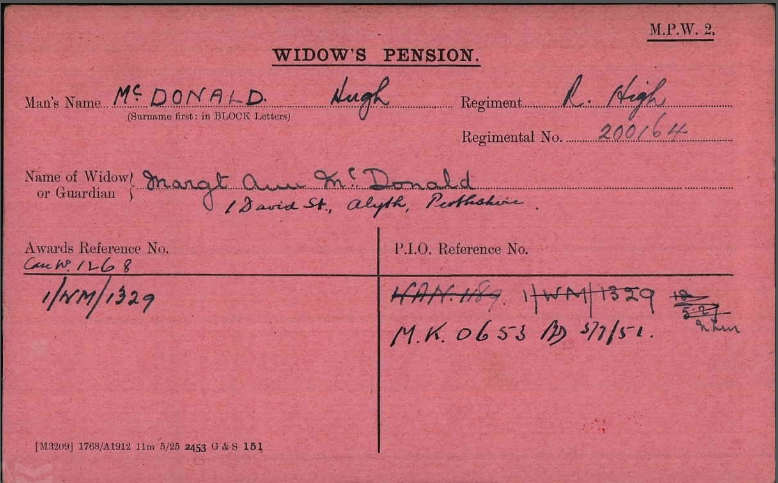 M.P.W. 2.
WIDOW'S PENSION.
Man's Name McDONALD. Hugh Regiment R. High
(Surname first: in BLOCK Letters)
Regimental No. 200164
Name of Widow or Guardian } Margt Ann McDonald
1 David St., Alyth, Perthshire.
Awards Reference No. P.I.O. Reference No.
1268
1/WM/1329 WAN. 1189. 1/WM/1329
M.K. 0653 5/7/51.
[M3209] 1768/A1912 11m 5/25 2453 G & S 151